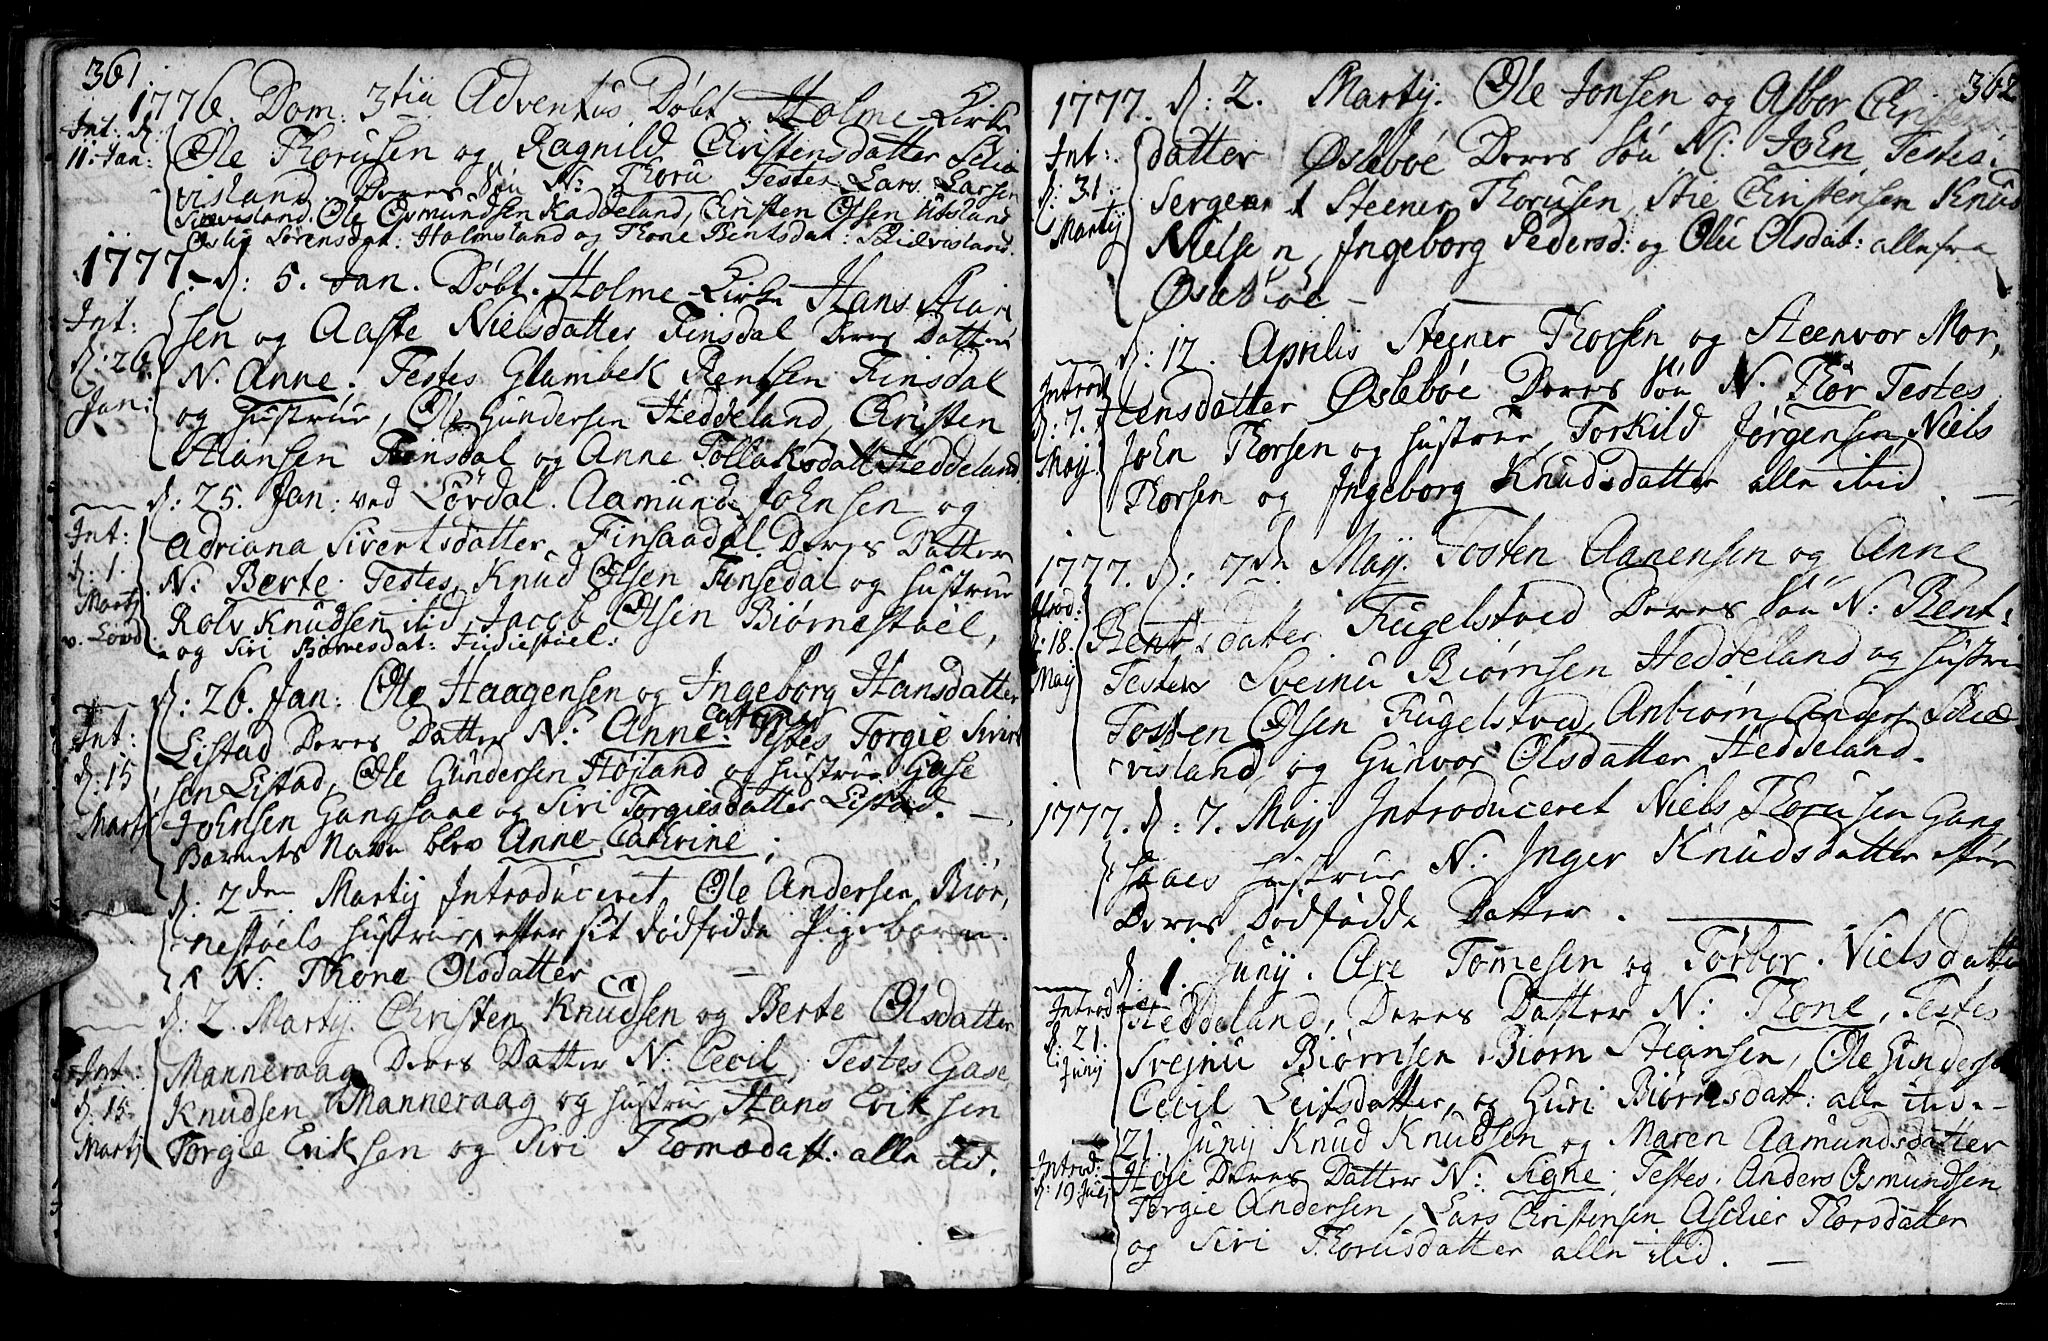 361
1776. Dom: 3tia Adventus. Døbt. Holme-Kirke
Int: d: 11: Jan:
Ole Thorusen og Ragnild Christensdatter
visland Deres Søn N: Thoru Testes Lars Larsen
Ole Osmundsen Kaddeland, Christen Olsen Ubsland
Sørensdat: Holmsland og Thone Bentsdat:
1777. d: 5. Jan. Døbt. Holme-Kirke Hans Stian
Int: d: 26. Jan:
sen og Aaste Nielsdatter Finsdal Deres Datter
N. Anne. Testes Glambek Bentsen Finsdal
og Hustrue, Ole Gundersen Heddeland, Christen
Stiansen Finsdal og Anne Tollaksdatt: Heddeland
d: 25. Jan: ved Lørdal. Aamund Johnsen og
Int: d: 1. Martij v. Lørd
Adriana Sivertsdatter, Finsaadal. Deres Datter
N: Berte. Testes, Knud Olsen Finsedal og Hustrue
Rolv Knudsen ibid, Jacob Olsen Biørnestøel,
og Siri Biørnesdat:
d: 26. Jan: Ole Haagensen og Ingeborg Hansdatter
Int: d: 15 Martij
Listad Deres Datter N: Anne Catrine Testes Torgie Sivert
sen Listad, Ole Gundersen Højland og Hustrue Gase
Johnsen Gangsaae og Siri Torgiesdatter Listad.
Barnets Navn blev Anne Cathrine;
d: 2den Martij Introduceret Ole Andersen Biør,
nestøels Hustrue efter sit dødfødde Pigebarn.
N: Thone Olsdatter
d: 2. Martij. Christen Knudsen og Berte Olsdatter
Int: d: 15. Martij
Manneraag Deres Datter N: Cecil, Testes Gase
Knudsen Manneraag og Hustrue Hans Eriksen
Torgie Eriksen og Siri Thomædatt: alle ibid.
362
1777. d: 2. Martij. Ole Jonsen og Asbor Christens
Int: d: 31 Martij
datter Øslebøe Deres Søn N: John, Testes
Sergeant Steener Thorusen, Stie Christensen Knud
Nielsen, Ingeborg Pedersd: og Ole Olsdat: alle fra
Øslebøe
d: 12. Aprilis Steener Thorsen og Steenvor Mor,
Introd d: 7. Maij
tensdatter Øslebøe Deres Søn N. Thor Testes
John Thorsen og Hustrue, Torkild Jørgensen, Niels
Thorsen og Ingeborg Knudsdatter alle ibid.
1777. d: 7de Maij. Tosten Aanensen og Anne
Introd: d: 18. Maij
Bentsdatter Fugelstved Deres Søn N: Bent.
Testes Sveinu Biørnsen Heddeland og Hustrue
Tosten Olsen Fugelstved, Anbiørn Anders
visland, og Gunvor Olsdatter Heddeland.
1777. d: 7. Maij Introduceret Niels Thorusen Gang
saaes Hustrue N: Inger Knudsdatter efter
Deres Dødfødde Datter.
d: 1. Junij. Are Tomesen og Torbor Nielsdatter
Introd d: 21. Junij
Heddeland, Deres Datter N: Thone, Testes
Svejnu Biørnsen Biørn Stiansen, Ole Gundersen
Cecil Leifsdatter, og Guri Biørnsdatt: alle ibid
21. Junij Knud Knudsen og Maren Aamundsdatter
Introd: d: 19 Julij
Høje Deres Datter N: Signe, Testes. Anders Osmundsen
Torgie Andersen, Lars Christensen Aschier Thorsdatter
og Siri Thorusdatter alle ibid.